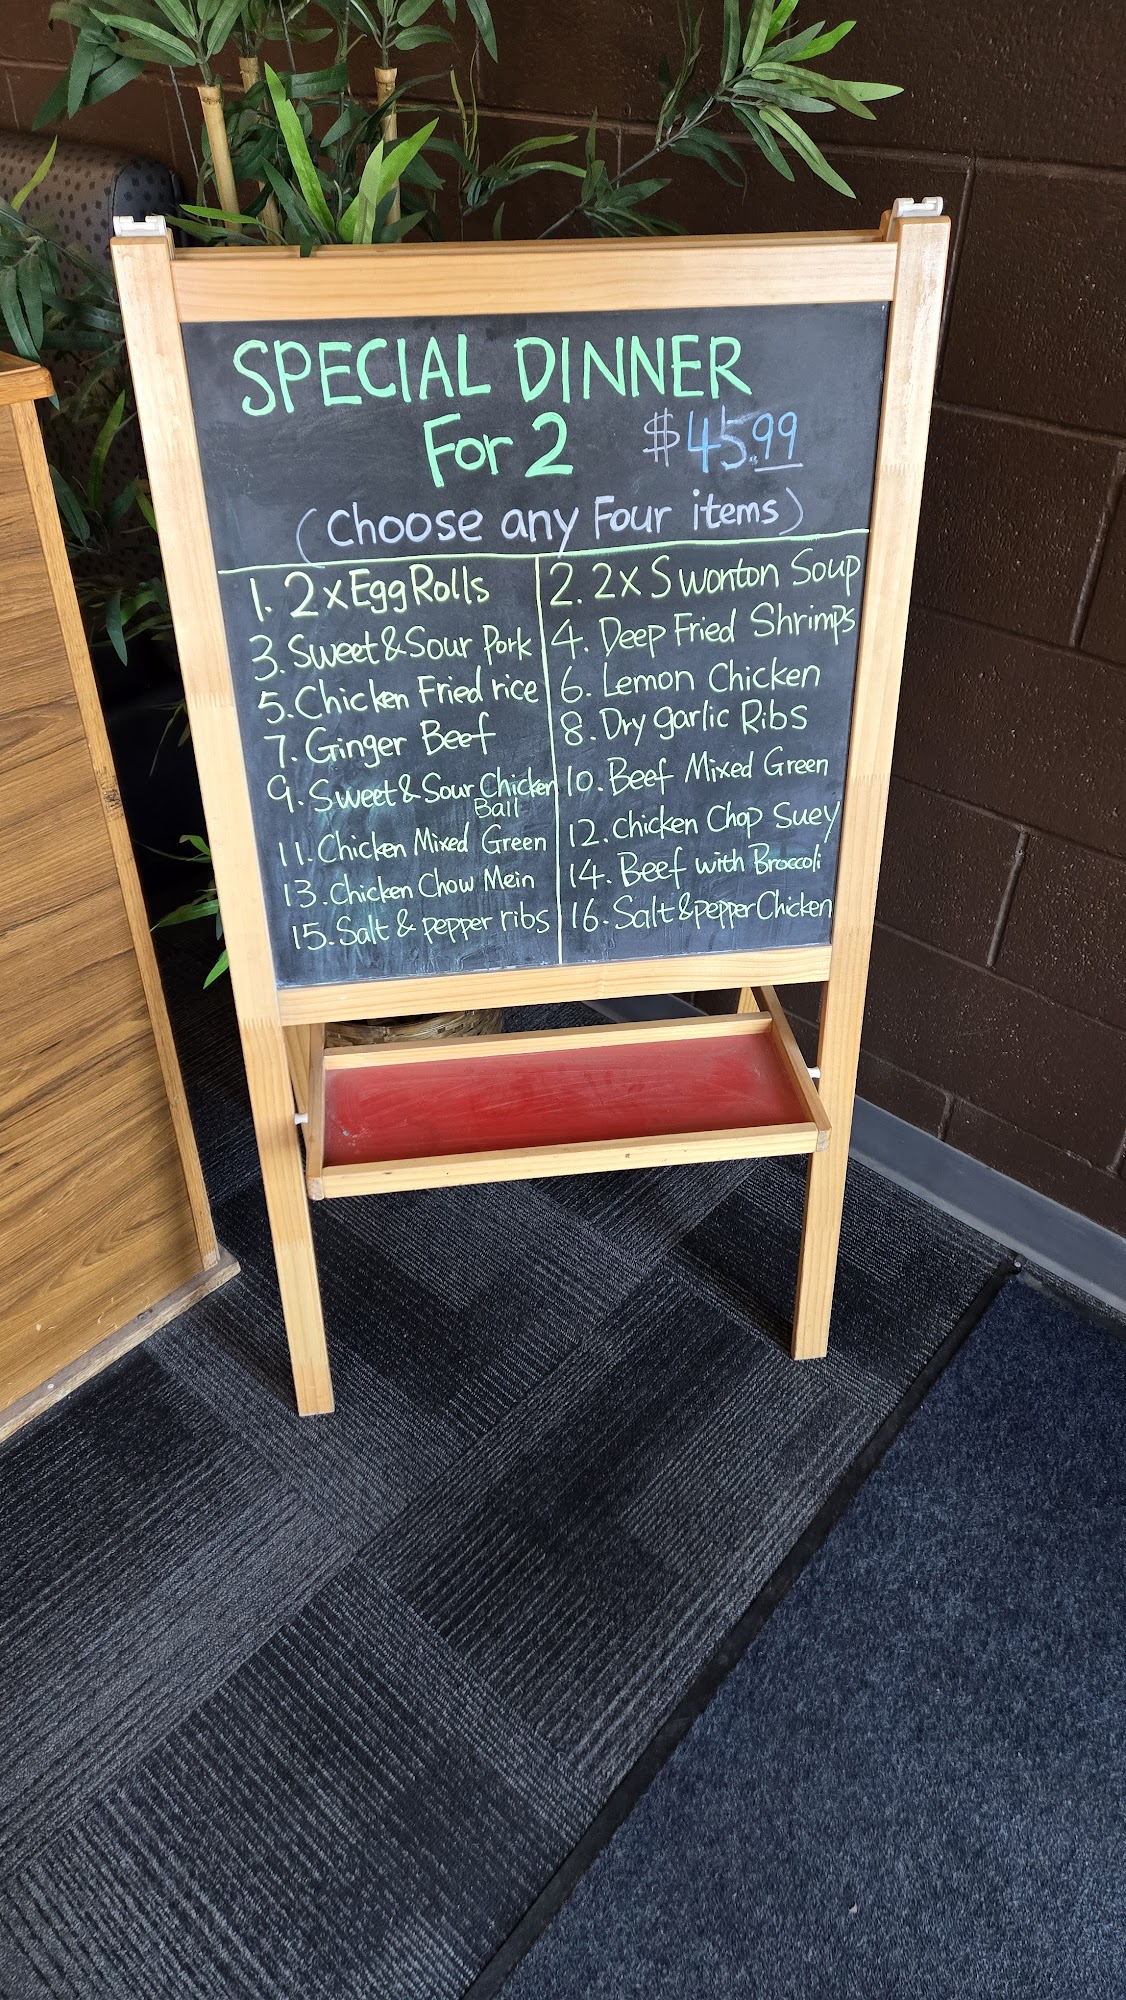 SPECIAL DINNER
For 2 $45.99
(Choose any Four items)
1. 2x Egg Rolls
2. 2x S wonton Soup
3. Sweet & Sour Pork
4. Deep Fried Shrimps
5. Chicken Fried rice
6. Lemon Chicken
7. Ginger Beef
8. Dry garlic Ribs
9. Sweet & Sour Chicken
Ball
10. Beef Mixed Green
11. Chicken Mixed Green
12. Chicken Chop Suey
13. Chicken Chow Mein
14. Beef with Broccoli
15. Salt & pepper ribs
16. Salt & pepper Chicken